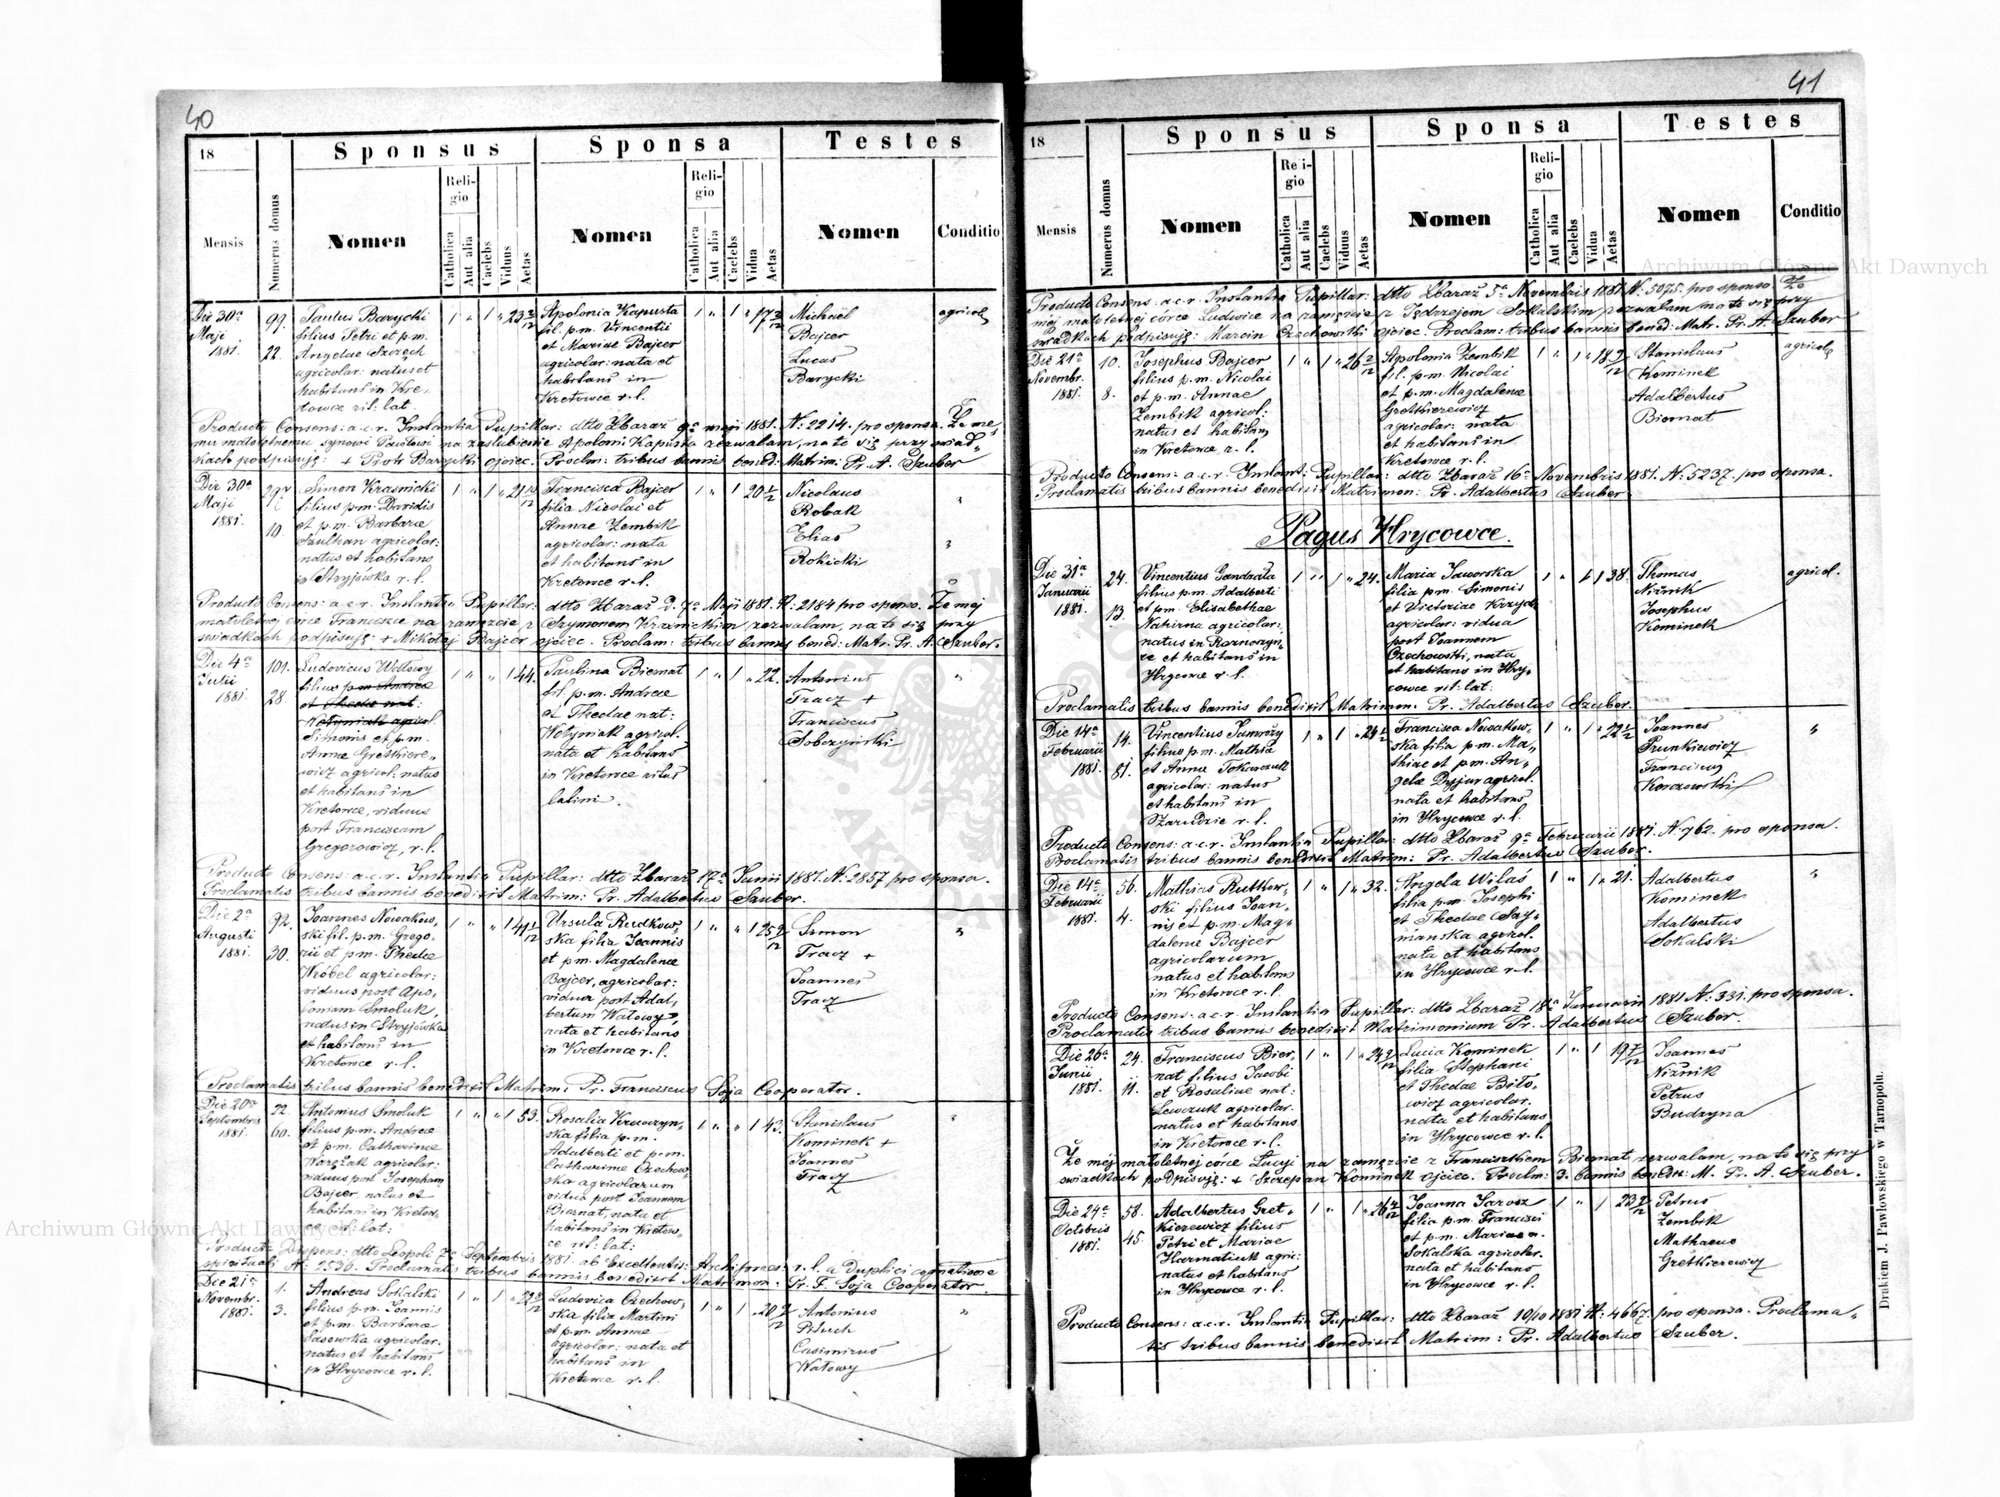 40
18
Sponsus
Sponsa
Testes
Mensis
Numerus domus
Nomen
Religio
Catholica
Aut alia
Caelebs
Viduus
Aetas
Nomen
Religio
Catholica
Aut alia
Caelebs
Vidua
Aetas
Nomen
Conditio
Die 30a
Maji
1881.
99.
22.
Paulus Barycki
filius Petri et p.m.
Angelae Szozech
agricolar: natus et
habitans in Kre-
towce rit: lat
Apolonia Kapusta
fil. p.m. Vincentii
et Mariae Bajcer
agricolar: nata et
habitans in
Kretowce r.l.
Michael
Bajcer
Lucas
Barycki
agricol
Producto Consens: a.c.r. Instantia Pupillar: dtto Zbaraż 9a maji 1881. N: 2214. pro sponso. Że me
mu małoletnemu synowi Pawłowi na zaślubienie Apoloni Kapusta zezwalam, na to się przy świad-
kach podpisuję: + Piotr Barycki ojciec. Proclm: tribus bannis bened: Matrim. Pr. A. Szuber
Die 30a
Maji
1881.
10.
Simon Krasnicki
filius p.m. Davidis
et p.m. Barbarae
Szulhan agricolar:
natus et habitans
in Stryjówka r.l.
Francisca Bajcer
filia Nicolai et
Annae Zembik
agricolar: nata
et habitans in
Kretowce r.l.
20 1/2
Nicolaus
Robak
Elias
Rokicki
Producto Consens: a.c.r. Instantia Pupillar: dtto Zbaraż d. 7a Maji 1881. N: 2184 pro sponso. Że mej
małoletnej córce Franciszce na zamęzcie z Szymonem Krasnickim zezwalam, na to się przy
swiadkach podpisuję: + Mikołaj Bajcer ojciec. Proclam: tribus bannis bened: Matr. Pr. A. Szuber.
Die 4a
Julii
1881.
101.
28.
Ludovicus Watowy
filius p.m. Andreae
et Theclae nat:
Wołyniak agricol.
Simonis et p.m.
Annae Gretkiere-
wicz agricol: natus
et habitans in
Kretowce, viduus
post Franciscam
Gregorowicz, r.l.
44.
Paulina Biernat
fil. p.m. Andreae
et Theclae nat:
Wołyniak agricol.
nata et habitans
in Kretowce ritus
latini.
22.
Antonius
Tracz +
Franciscus
Sobczyński
Producto Consens: a.c.r. Instantia Pupillar: dtto Zbaraż 17a Junii 1881. N: 2857 pro sponsa.
Proclamatis tribus bannis benedixit Matrim: Pr. Adalbertus Szuber.
Die 2a
Augusti
1881.
92.
30.
Joannes Nowakow-
ski fil. p.m. Grego-
rii et p.m. Theclae
Wróbel agricolar:
viduus post Apo-
loniam Smoluk,
natus in Stryjówka
et habitans in
Kretowce r.l.
Ursula Rudkow-
ska filia Joannis
et p.m. Magdalenae
Bajcer, agricolar:
vidua post Adal-
bertum Watowy,
nata et habitans
in Kretowce r.l.
Simon
Tracz +
Joannes
Tracz
Proclamatis tribus bannis benedixit Matrim: Pr. Franciscus Soja Cooperator.
Die 20a
Septembris
1881.
22.
60.
Antonius Smoluk
filius p.m. Andreae
et p.m. Catharinae
Warżak agricolar:
viduus post Josepham
Bajcer natus et
habitans in Kretow-
ce rit: lat:
53.
Rosalia Krawczyn-
ska filia p.m.
Adalberti et p.m.
Catharinae Czechow-
ska agricolarum
vidua post Joannem
Biernat, nata et
habitans in Kretow-
ce rit: lat:
43.
Stanislaus
Kominek +
Joannes
Tracz
Producta Dispens: dtto Leopoli 7a Septembris 1881. ab Excellentis: Archiepisc: r.l. a duplici cognatione
spirituali N: 2536. Proclamatis tribus bannis benedixit Matrimon: Pr. F. Soja Cooperator.
Die 21a
Novembr.
1881.
1.
3.
Andreas Sokalski
filius p.m. Joannis
et p.m. Barbarae
Sasowska agricolar.
natus et habitans
in Hrycowce r.l.
Ludovica Czechow-
ska filia Martini
et p.m. Annae
agricolar: nata et
habitans in
Kretowce r.l.
Antonius
Pituch
Casimirus
Watowy
41
18
Sponsus
Sponsa
Testes
Mensis
Numerus domus
Nomen
Re i-
gio
Catholica
Aut alia
Caelebs
Viduus
Aetas
Nomen
Religio
Catholica
Aut alia
Caelebs
Vidua
Aetas
Nomen
Conditio
Producto Consens: a.c.r. Instantia Pupillar: dtto Zbaraż 5a Novembris 1881. N: 5075. pro sponso. Że
mej małoletnej córce Ludwice na zamęzcie z Jędrzejem Sokalskim zezwalam na to się przy
swiadkach podpisuję: Marcin Czechowski ojciec. Proclam: tribus bannis bened: Matr. Pr. A. Szuber
Die 21a
Novembr.
1881.
10.
8.
Josephus Bajcer
filius p.m. Nicolai
et p.m. Annae
Zembik agricol:
natus et habitans
in Kretowce r.l.
Apolonia Zembik
fil. p.m. Nicolai
et p.m. Magdalenae
Gretkierewicz
agricolar: nata
et habitans in
Kretowce r.l.
Stanislaus
Kominek
Adalbertus
Biernat
agricolae
Producto Consens: a.c.r. Instant: Pupillar: dtto Zbaraż 16a Novembris 1881. N: 5237. pro sponsa.
Proclamatis tribus bannis benedixit Matrimon: Pr. Adalbertus Szuber.
Pagus Hrycowce.
Die 31a
Januarii
1881.
24.
13.
Vincentius Gandzała
filius p.m. Adalberti
et p.m. Elisabethae
Nahirna agricolar:
natus in
et habitans in
Hrycowce r.l.
24.
Maria Jaworska
filia p.m. Simonis
et Victoriae Krzych
agricolar: vidua
post Joannem
Czechowski, nata
et habitans in Hry-
cowce rit: lat:
38.
Thomas
Niznik
Josephus
Kominek
agricol.
Proclamatis tribus bannis benedixit Matrimon: Pr. Adalbertus Szuber.
Die 14a
Februarii
1881.
14.
81.
Vincentius Jamroży
filius p.m. Mathiae
et Annae Tokarczuk
agricolar: natus
et habitans in
Szarudzie r.l.
Francisca Nowakow-
ska filia p.m. Ma-
thiae et p.m. An-
gelae Dyjur agricol.
nata et habitans
in Hrycowce r.l.
Joannes
Prunkiewicz
Franciscus
Korczowski
Producto Consens: a.c.r. Instantia Pupillar: dtto Zbaraż 9a Februarii 1881. N. 762. pro sponsa.
Proclamatis tribus bannis benedixit Matrim: Pr. Adalbertus Szuber.
Die 14a
Februarii
1881.
56.
4.
Mathias Rutkow-
ski filius Joan-
nis et p.m. Mag-
dalenae Bajcer
agricolarum
natus et habitans
in Kretowce r.l.
32.
Angela Wilaś
filia p.m. Josephi
et Theclae Szy-
mańska agricol.
nata et habitans
in Hrycowce r.l.
21.
Adalbertus
Kominek
Adalbertus
Sokalski
Producto Consens: a.c.r. Instantia Pupillar: dtto Zbaraż 18a Januarii 1881 N. 331. pro sponsa.
Proclamatis tribus bannis benedixit Matrimonium Pr. Adalbertus Szuber.
Die 26a
Junii
1881.
24.
11.
Franciscus Bier-
nat filius Jacobi
et Rosaliae nat:
Lewczuk agricolar.
natus et habitans
in Kretowce r.l.
Lucia Kominek
filia Stephani
et Theclae Biło-
wicz agricolar.
nata et habitans
in Hrycowce r.l.
Joannes
Niznik
Petrus
Budzyna
Że mej małoletnej córce Łucyi na zamęzcie z Franciszkiem Biernat zezwalam, na to się przy
swiadkach podpisuję: + Szczepan Kominek ojciec. Proclm: 3. bannis bened: M. Pr. A. Szuber.
Die 24a
Octobris
1881.
58.
45.
Adalbertus Gret-
kierewicz filius
Petri et Mariae
Harmatiuk agric:
natus et habitans
in Hrycowce r.l.
Joanna Jarosz
filia p.m. Francisci
et p.m. Mariae n.
Sokalska agricolar.
nata et habitans
in Hrycowce r.l.
Petrus
Zembik
Mathaeus
Gretkierewicz
Producto Consens: a.c.r. Instantia Pupillar: dtto Zbaraż 10/10 1881 N: 4667. pro sponsa. Proclama-
tis tribus bannis benedixit Matrim: Pr. Adalbertus Szuber.
Drukiem J. Pawłowskiego w Tarnopolu.
Archiwum Główne Akt Dawnych
Archiwum Główne Akt Dawnych